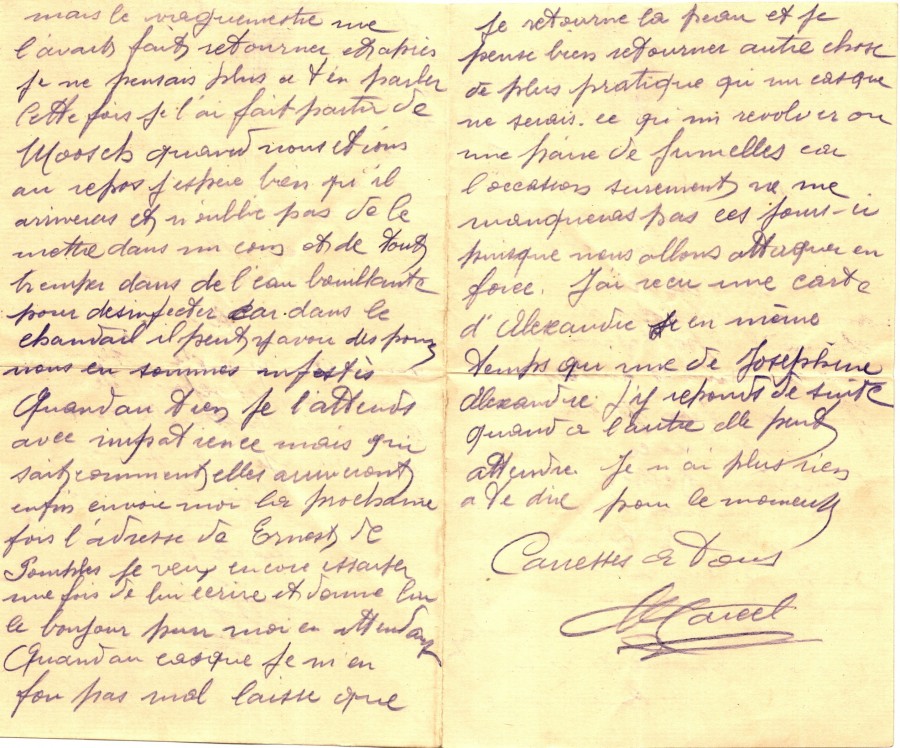 mais le vaguemestre me
l'avait fait retourner et après
je ne pensais plus a t'en parler
Cette fois je l'ai fait partir de
Moosch quand nous étions
au repos j'espere bien qu'il
arriveras et n'oublie pas de le
mettre dans un coin et de tout
tremper dans de l'eau bouillante
pour désinfecter car dans le
chandail il peut y avoir des poux
nous en sommes infestés
Quand au tien je l'attends
avec impatience mais qui
sait comment elles arriveront
enfin envoie moi la prochaine
fois l'adresse de Ernest de
je veux encore essaier
une fois de lui écrire et donne lui
le bonjour pour moi en attendant
Quand au casque je m'en
fou pas mal laisse que
je retourne la peau et je
pense bien retourner autre chose
de plus pratique qu'un casque
ne serais-ce qu'un revolver ou
une paire de jumelles car
l'occasion surement ne me
manqueras pas ces jours-ci
puisque nous allons attaquer en
force. J'ai recu une carte
d'Alexandre en même
temps qu'une de Josephine
Alexandre. J'y reponds de suite
quand a l'autre elle peut
attendre. Je n'ai plus rien
a te dire pour le moment
Caresses a tous
Marcel